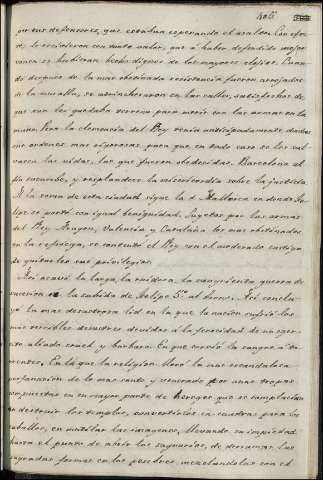 por sus defensores, que estaban esperando el asalto. Con efec-
to, le recibieron con tanto valor, que á haber defendido mejor
causa se hubieran hecho dignos de los mayores elogios. Cuan-
do despues de la mas obstinada resistencia fueron arrojados
de la muralla, se atrincheraron en las calles, satisfechos de
que aun les quedaba terreno para morir con las armas en la
mano. Pero la clemencia del Rey tenia anticipadamente dadas
sus ordenes mas rigorosas, para que en todo caso se les sal-
vasen las vidas, las que fueron obedecidas. Barcelona al
fin sucumbe, y resplandece la misericordia sobre la justicia.
A la toma de esta ciudad sigue la de Mallorca en donde Fe-
lipe se portó con igual benignidad. Sugetos por las armas
del Rey Aragon, Valencia y Cataluña los mas obstinados
en la refriega, se contentó el Rey con el moderado castigo
de quitarles sus privilegios.
Asi acabó la larga, la ruidosa, la sangrienta guerra de
sucesion á la subida de Felipe 5º al trono. Asi conclu-
yó la mas desastrosa lid en la que la nacion sufrió los
mas terribles desastres devidos á la ferocidad de un ejer-
cito aliado cruel y barbaro. En que corrió la sangre á to-
rrentes. En la que la religion lloró la mas escandalosa
profanacion de lo mas santo y venerado por unas tropas
compuestas en su mayor parte de hereges que se complacian
en destruir los templos, convertirlos en cuadras para los
caballos, en mutilar las imagenes, llevando su impiedad
hasta el punto de abrir los sagrarios, de derramar las
sagradas formas en los pesebres mezclandolas con el